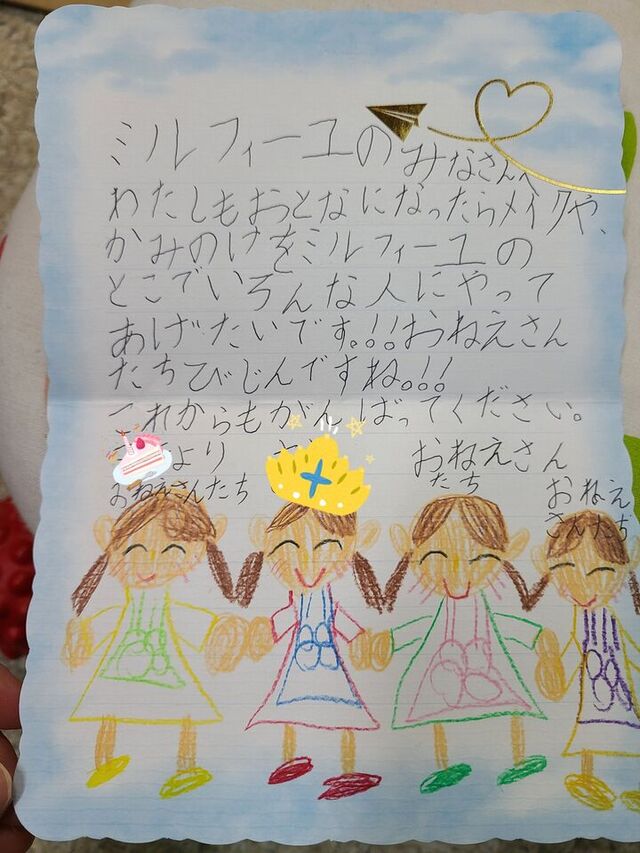 ミルフィーユのみなさんへ
わたしもおとなになったらメイクや、
かみのけをミルフィーユの
とこでいろんな人にやって
あげたいです。!!おねえさん
たちびじんですね。!!
これからもがんばってください。
より
おねえさんたち
おねえさん
たち
おねえ
さんたち